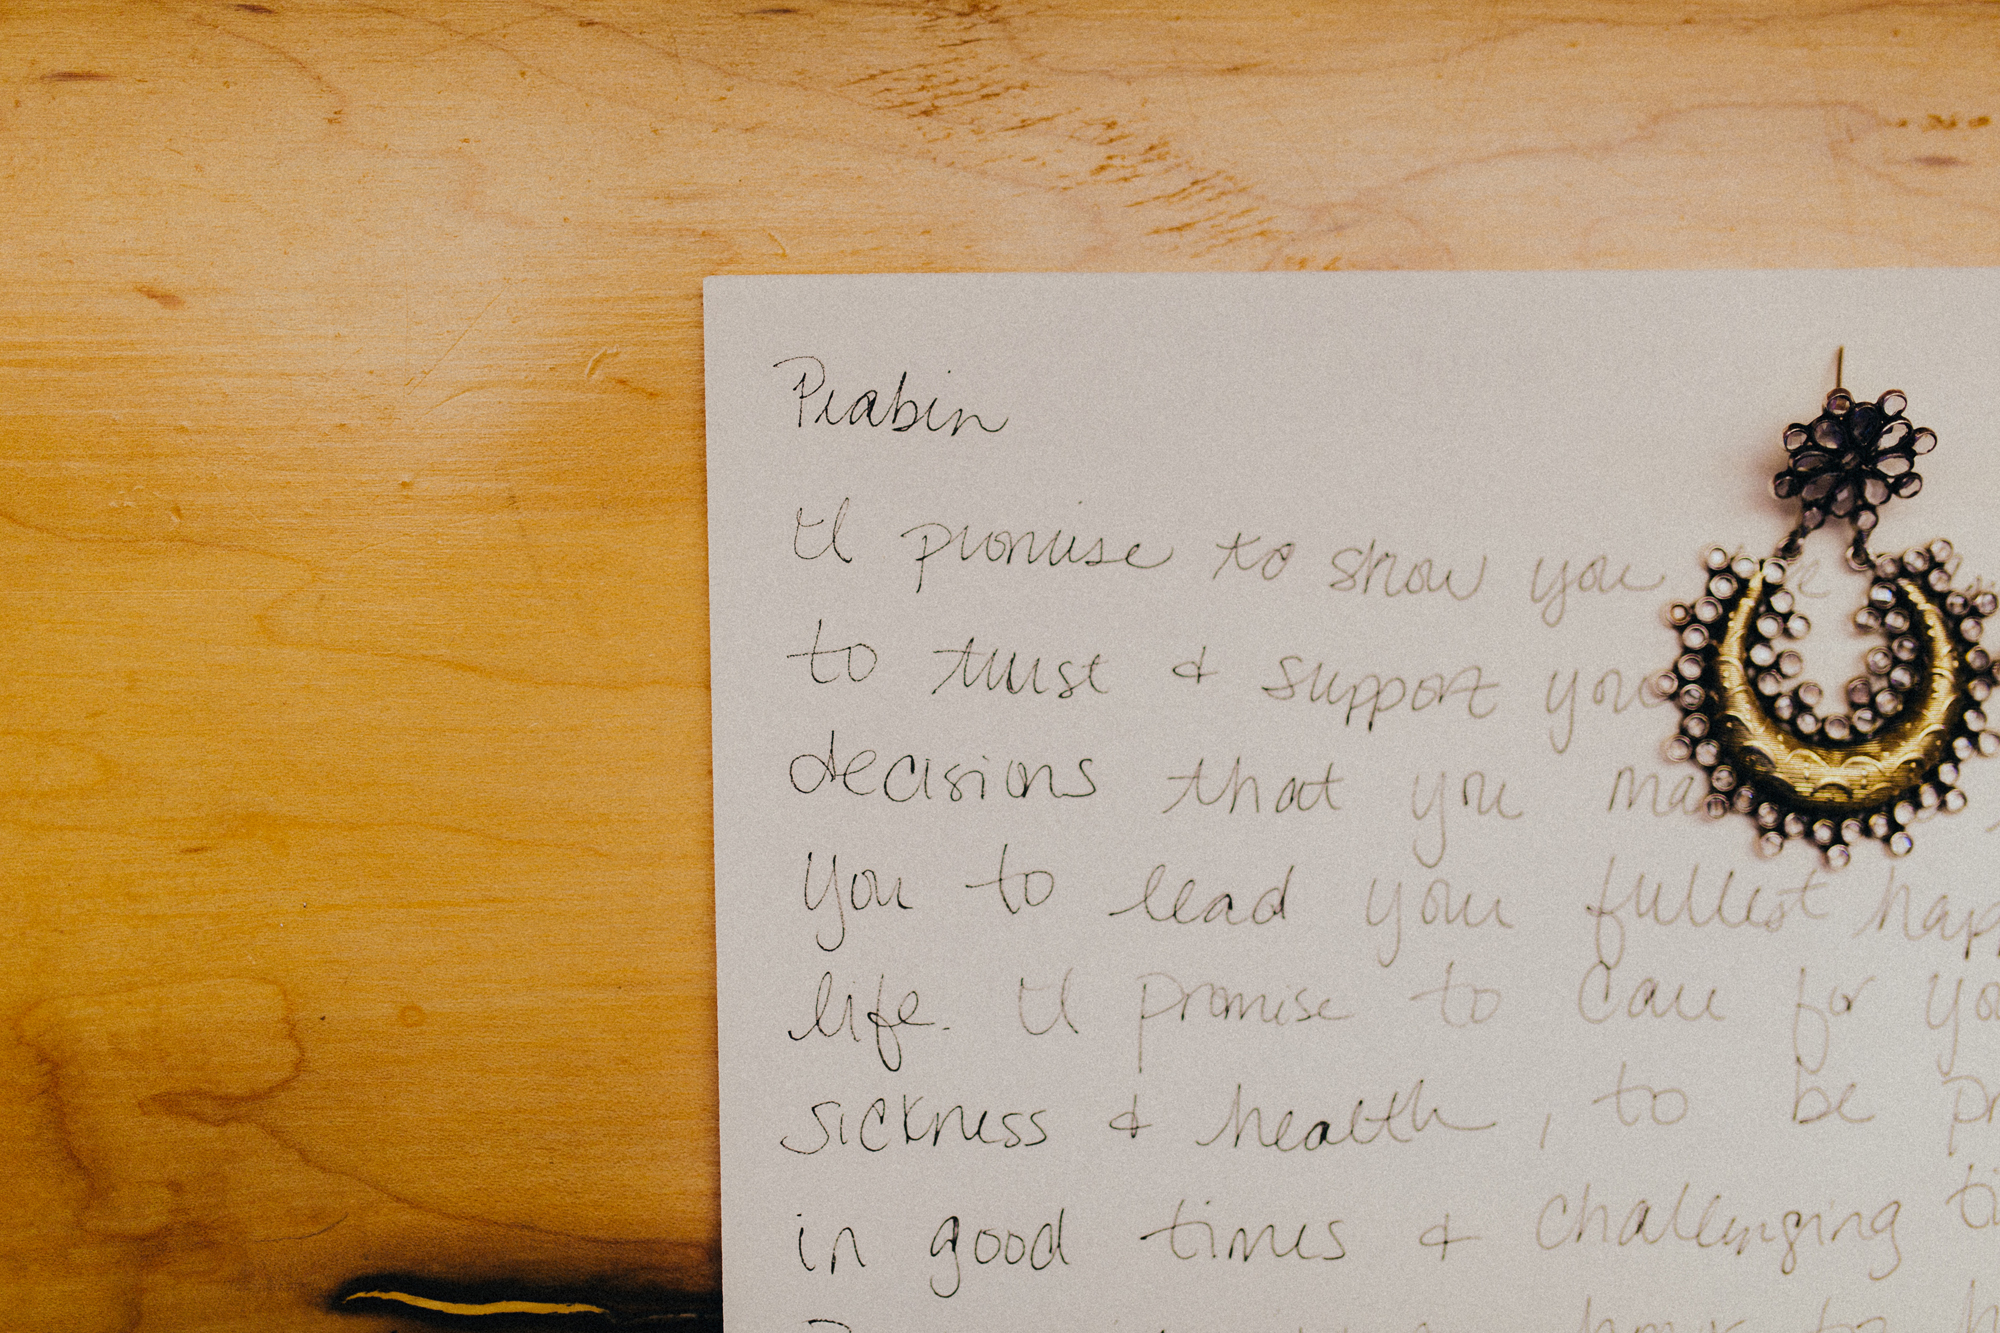 Prabin
I promise to show you
to trust & support your
decisions that you
you to lead your fullest
life. I promise to care for
sickness & health, to be
in good times & challenging